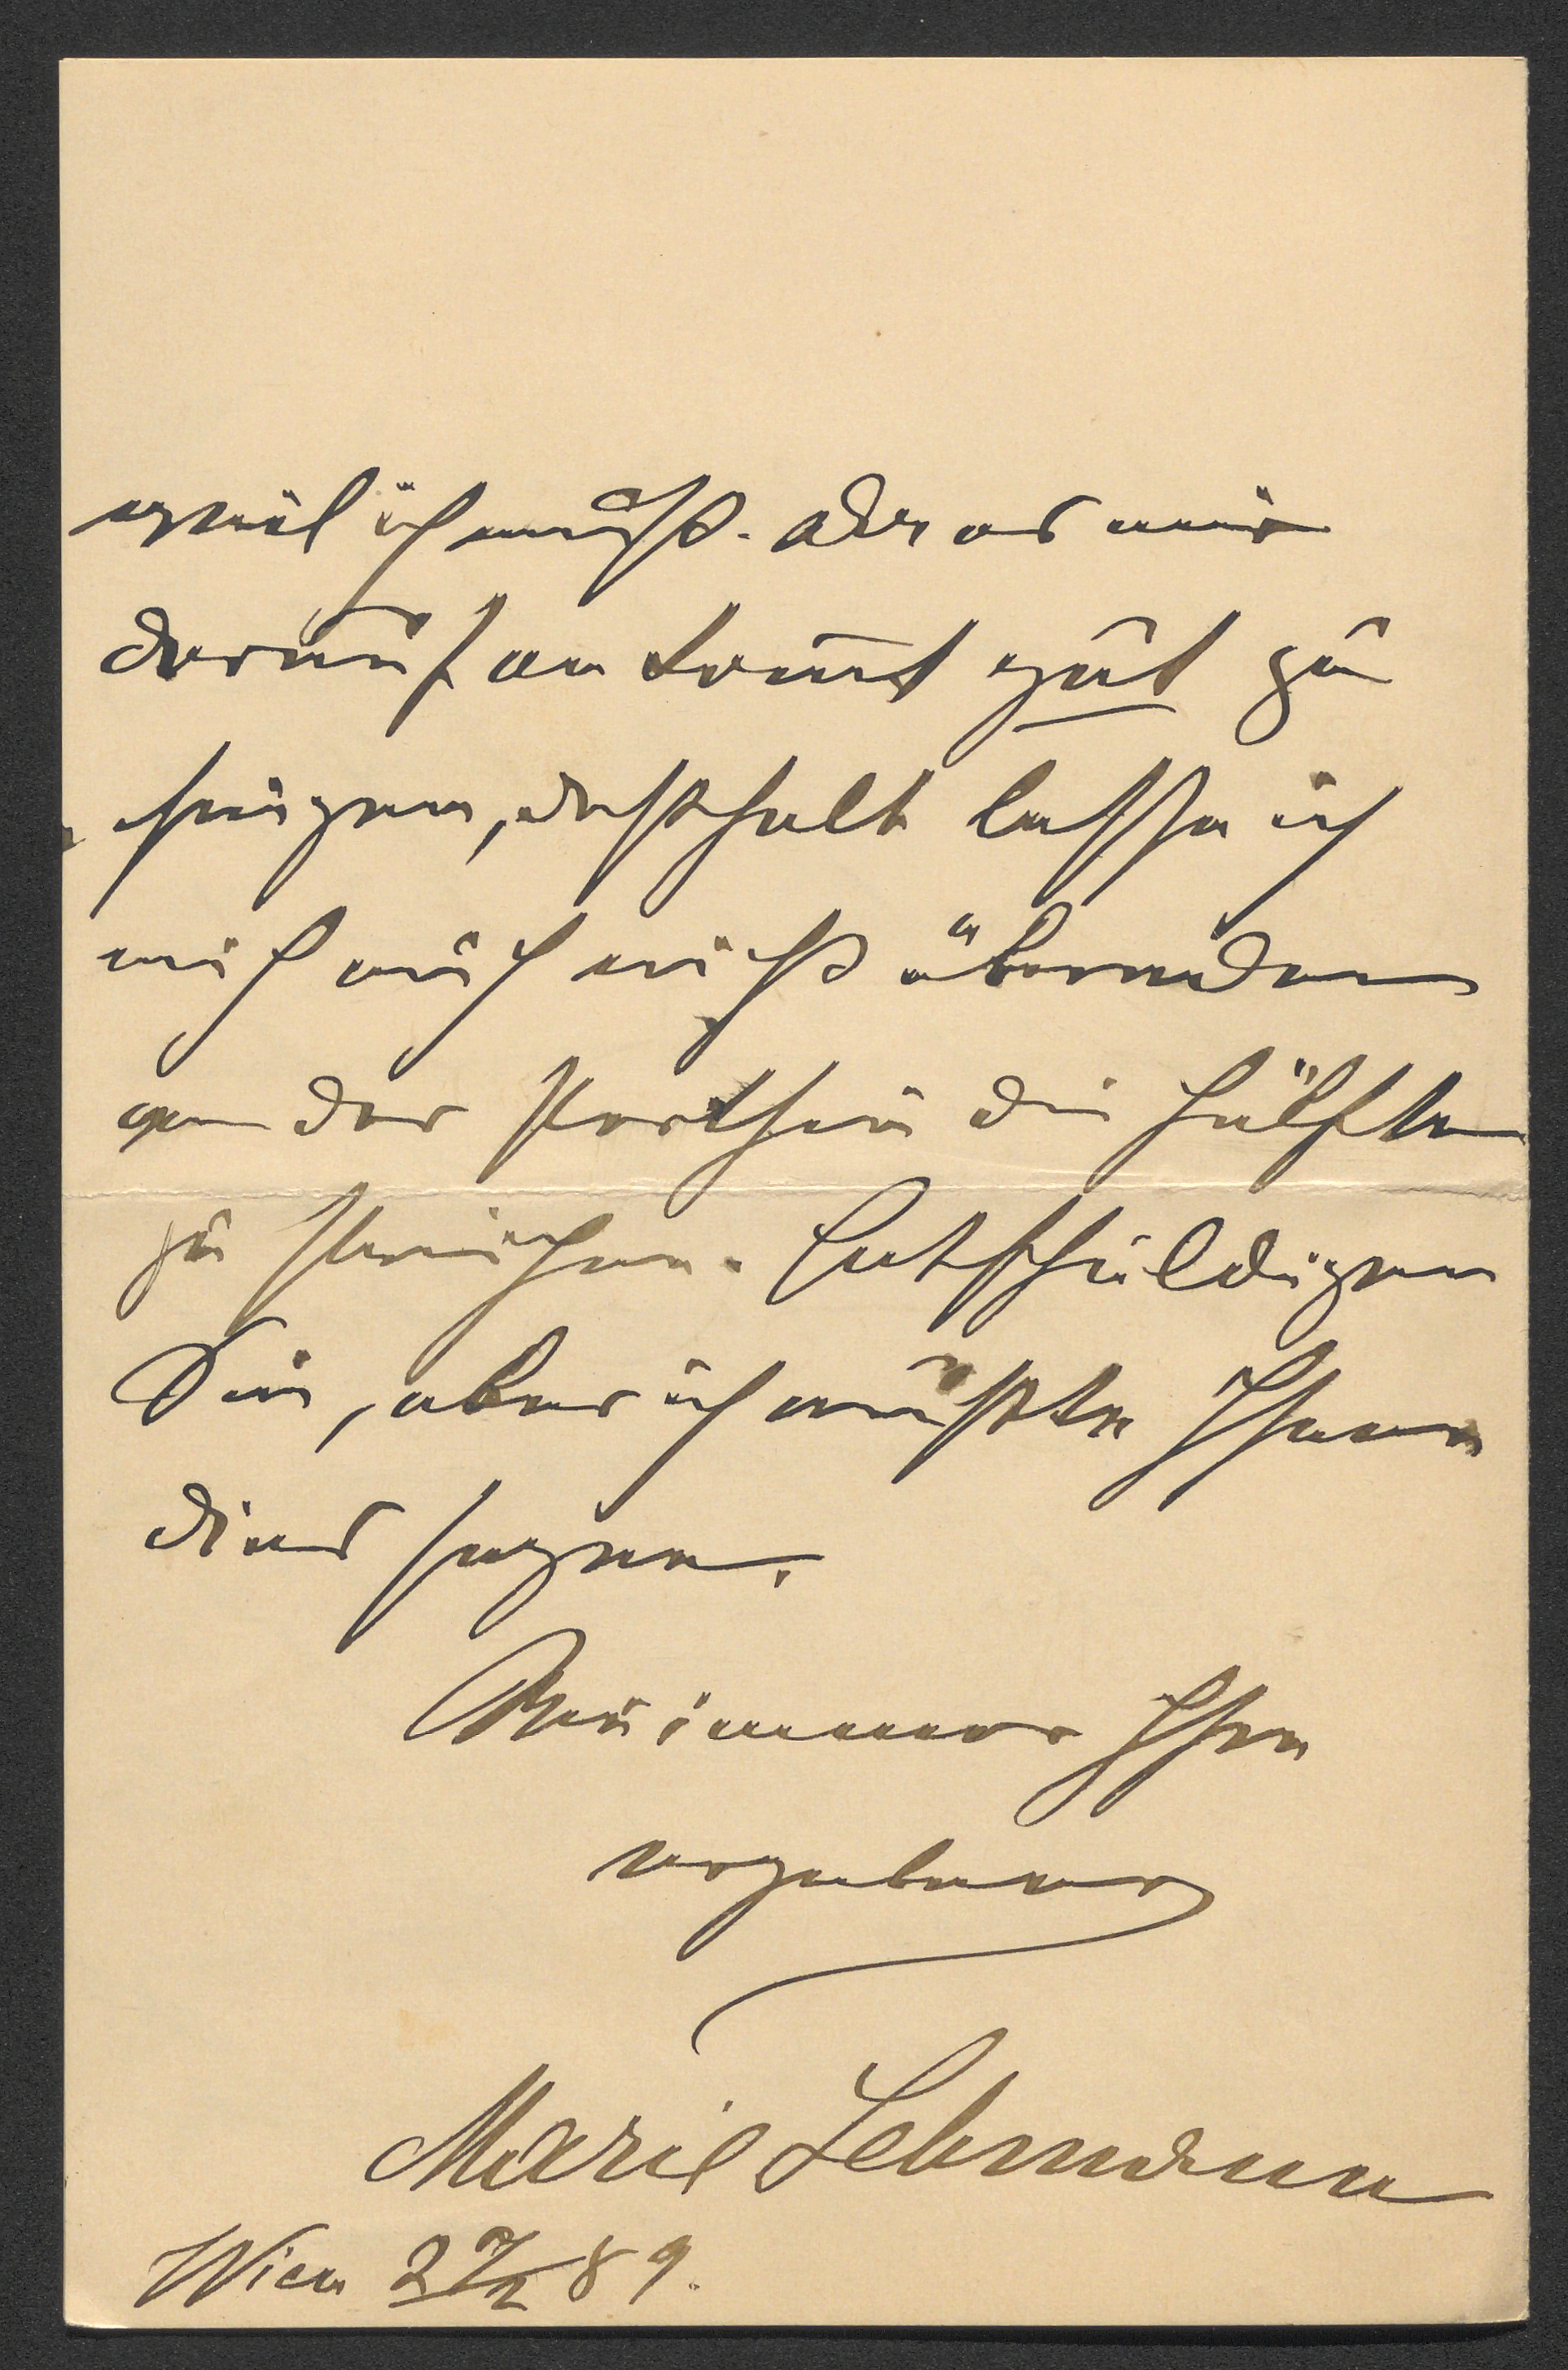 weil ich muß. Der es mir
darauf an komt gut zu
singen, deßhalb lasse ich
mich auch nicht überreden
an der Parthie die Hälfte
zu streichen. Entschuldigen
Sie, aber ich mußte Ihnen
dies sagen.
Wie immer Ihre
ergebene
Marie Lehmann
Wien 27/2 89.